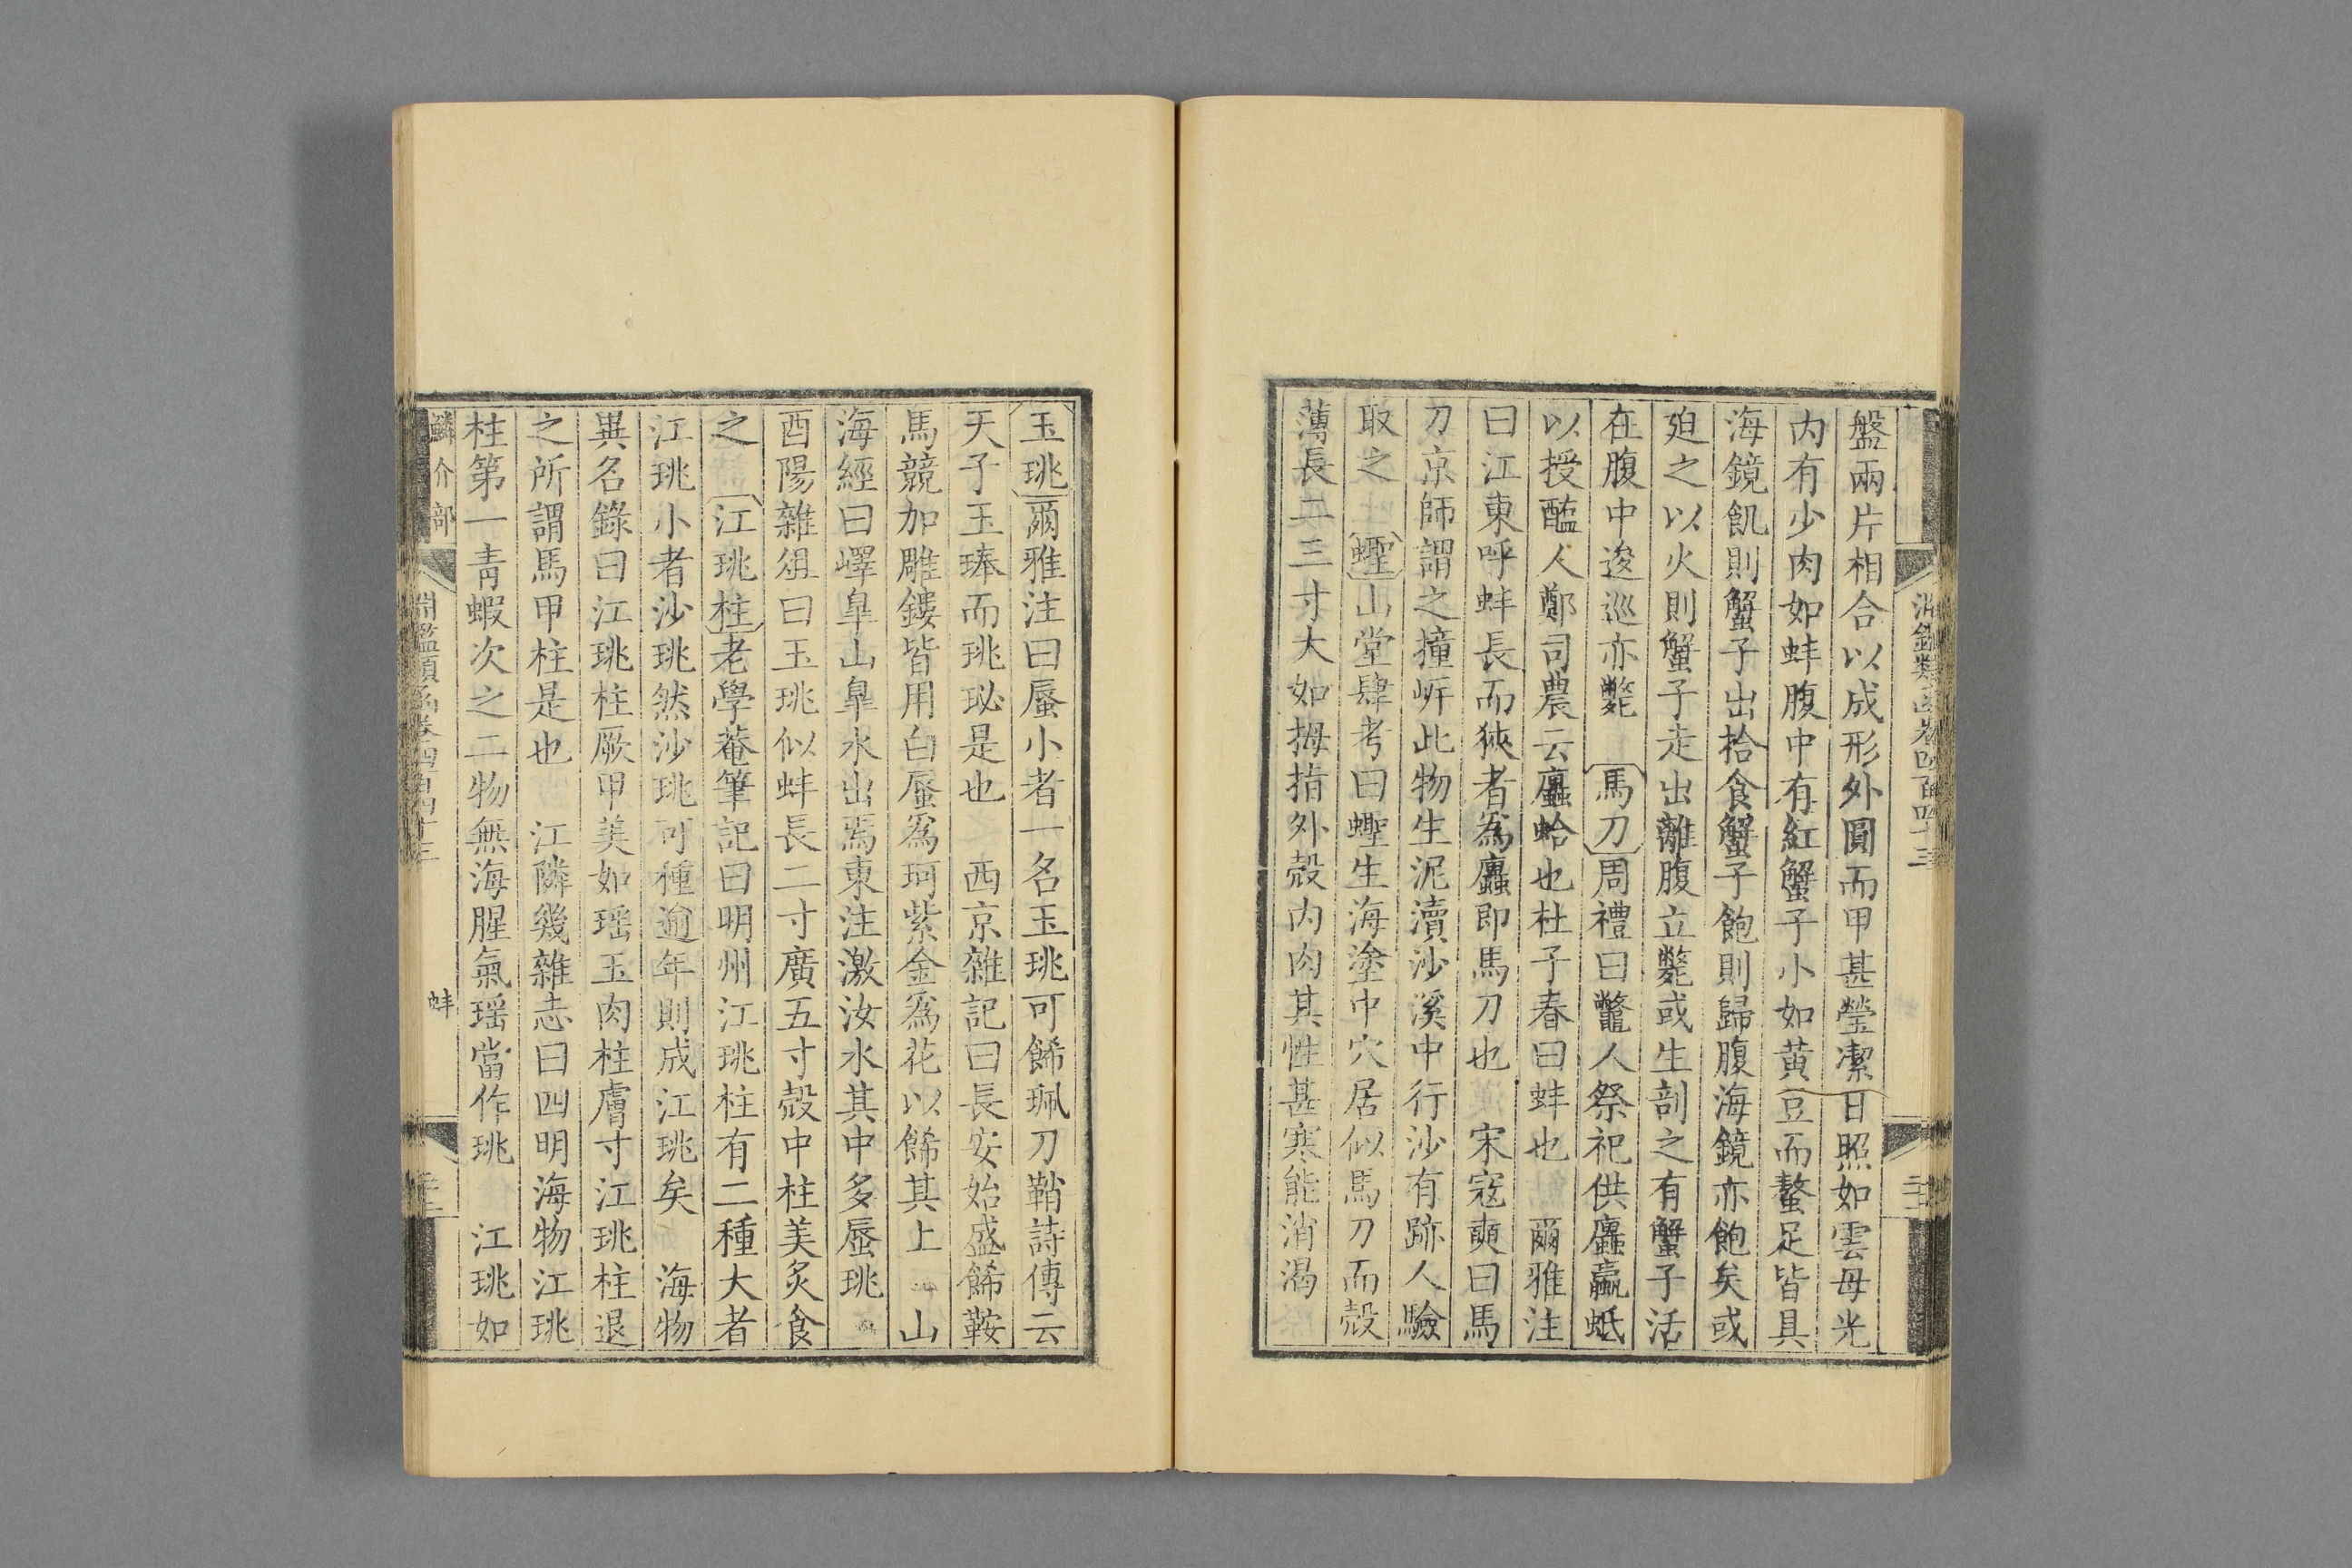 盤兩片相合以成形外圓而甲甚瑩潔日照如雲母光
內有少肉如蚌腹中有紅蟹子小如黃豆而螯足皆具
海鏡飢則蟹子出拾食蟹子飽則歸腹海鏡亦飽矣或
廹之以火則蟹子走出離腹立斃或生剖之有蟹子活
在腹中逡巡亦斃　馬刀周禮曰鼈人祭祀供蠯蠃蚳
以授醢人鄭司農云蠯蛤也杜子春曰蚌也　爾雅注
曰江東呼蚌長而狹者爲蠯即馬刀也　宋寇奭曰馬
刀京師謂之撞岓此物生泥瀆沙溪中行沙有跡人驗
取之　蟶山堂肆考曰蟶生海塗中穴居似馬刀而殼
薄長二三寸大如拇指外殼內肉其性甚寒能消渴
玉珧爾雅注曰蜃小者一名玉珧可餙珮刀鞘詩傳云
天子玉琫而珧珌是也　西京雜記曰長安始盛餙鞍
馬競加雕鏤皆用白蜃爲珂紫金爲花以餙其上　山
海經曰嶧皐山皐水出焉東注激汝水其中多蜃珧
酉陽雜俎曰玉珧似蚌長二寸廣五寸殼中柱美炙食
之　江珧柱老學菴筆記曰明州江珧柱有二種大者
江珧小者沙珧然沙珧可種逾年則成江珧矣　海物
異名錄曰江珧柱厥甲美如瑶玉肉柱膚寸江珧柱退
之所謂馬甲柱是也　江隣幾雜志曰四明海物江珧
柱第一青蝦次之二物無海腥氣瑶當作珧　江珧如
鱗介部
淵鑑類函卷四百四十三
蚌